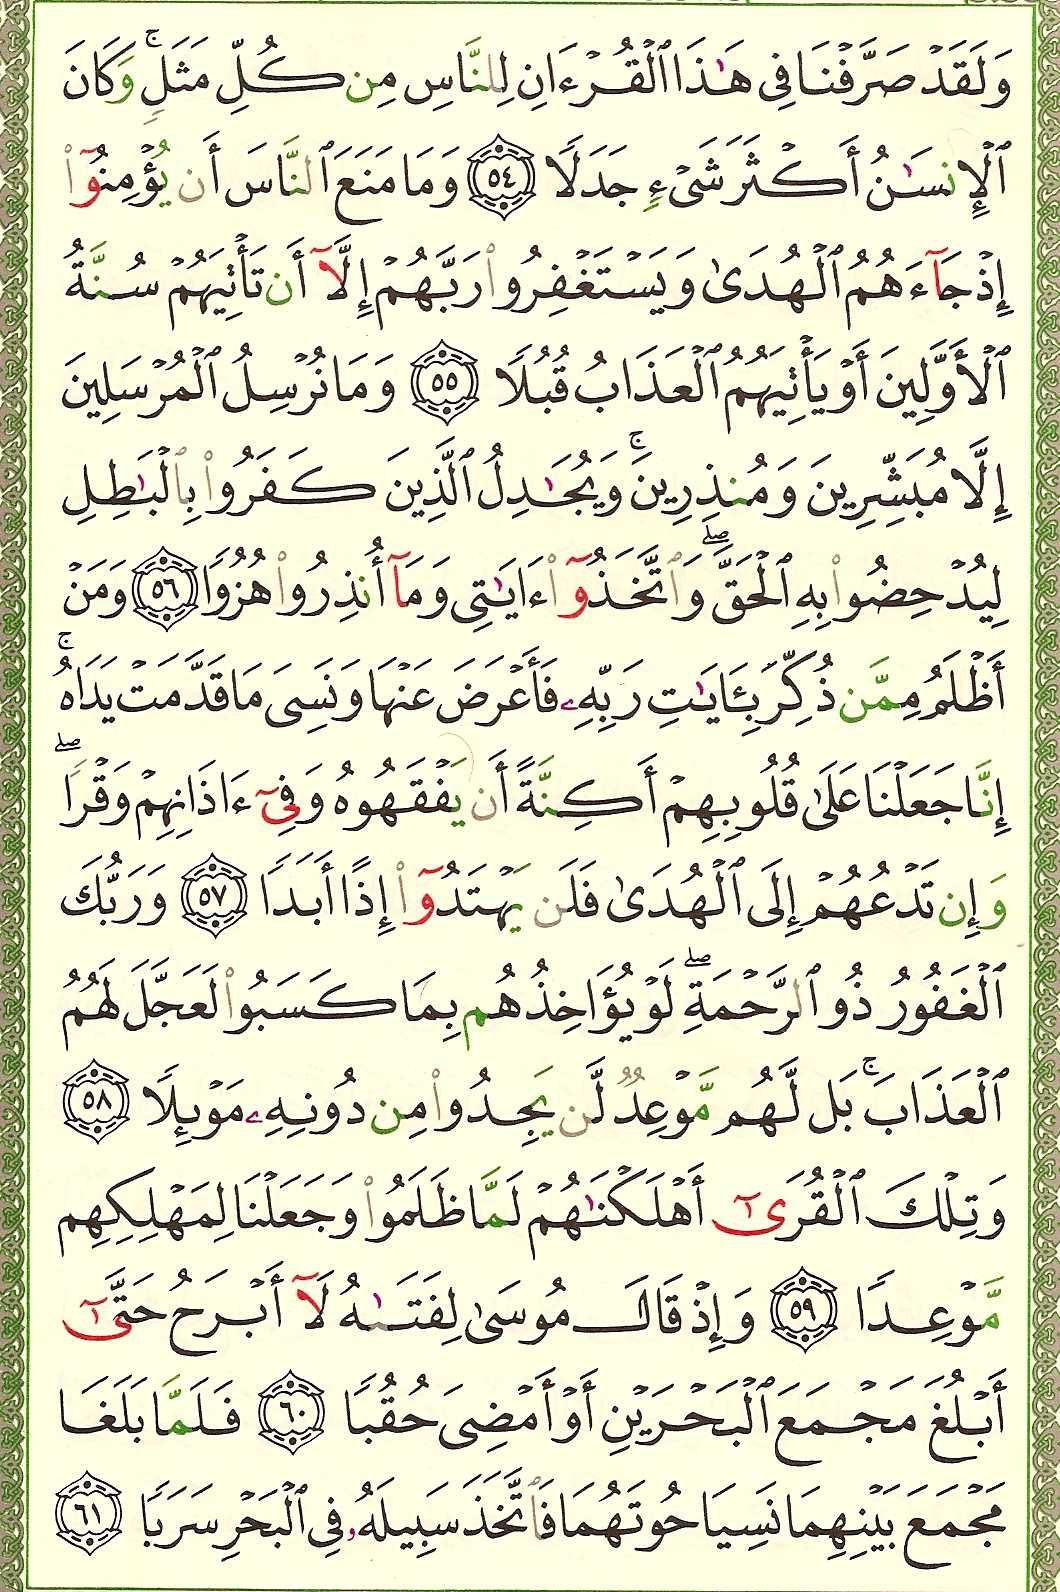 وَلَقَدْ صَرَّفْنَا فِى هَٰذَا ٱلْقُرْءَانِ لِلنَّاسِ مِن كُلِّ مَثَلٍۢ ۚ وَكَانَ
ٱلْإِنسَٰنُ أَكْثَرَ شَىْءٍۢ جَدَلًۭا ٥٤ وَمَا مَنَعَ ٱلنَّاسَ أَن يُؤْمِنُوٓا۟
إِذْ جَآءَهُمُ ٱلْهُدَىٰ وَيَسْتَغْفِرُوا۟ رَبَّهُمْ إِلَّآ أَن تَأْتِيَهُمْ سُنَّةُ
ٱلْأَوَّلِينَ أَوْ يَأْتِيَهُمُ ٱلْعَذَابُ قُبُلًۭا ٥٥ وَمَا نُرْسِلُ ٱلْمُرْسَلِينَ
إِلَّا مُبَشِّرِينَ وَمُنذِرِينَ ۚ وَيُجَٰدِلُ ٱلَّذِينَ كَفَرُوا۟ بِٱلْبَٰطِلِ
لِيُدْحِضُوا۟ بِهِ ٱلْحَقَّ ۖ وَٱتَّخَذُوٓا۟ ءَايَٰتِى وَمَآ أُنذِرُوا۟ هُزُوًۭا ٥٦ وَمَنْ
أَظْلَمُ مِمَّن ذُكِّرَ بِـَٔايَٰتِ رَبِّهِۦ فَأَعْرَضَ عَنْهَا وَنَسِىَ مَا قَدَّمَتْ يَدَاهُ ۚ
إِنَّا جَعَلْنَا عَلَىٰ قُلُوبِهِمْ أَكِنَّةً أَن يَفْقَهُوهُ وَفِىٓ ءَاذَانِهِمْ وَقْرًۭا ۖ
وَإِن تَدْعُهُمْ إِلَى ٱلْهُدَىٰ فَلَن يَهْتَدُوٓا۟ إِذًا أَبَدًۭا ٥٧ وَرَبُّكَ
ٱلْغَفُورُ ذُو ٱلرَّحْمَةِ ۖ لَوْ يُؤَاخِذُهُم بِمَا كَسَبُوا۟ لَعَجَّلَ لَهُمُ
ٱلْعَذَابَ ۚ بَل لَّهُم مَّوْعِدٌۭ لَّن يَجِدُوا۟ مِن دُونِهِۦ مَوْئِلًۭا ٥٨
وَتِلْكَ ٱلْقُرَىٰٓ أَهْلَكْنَٰهُمْ لَمَّا ظَلَمُوا۟ وَجَعَلْنَا لِمَهْلِكِهِم
مَّوْعِدًۭا ٥٩ وَإِذْ قَالَ مُوسَىٰ لِفَتَىٰهُ لَآ أَبْرَحُ حَتَّىٰٓ
أَبْلُغَ مَجْمَعَ ٱلْبَحْرَيْنِ أَوْ أَمْضِىَ حُقُبًۭا ٦٠ فَلَمَّا بَلَغَا
مَجْمَعَ بَيْنِهِمَا نَسِيَا حُوتَهُمَا فَٱتَّخَذَ سَبِيلَهُۥ فِى ٱلْبَحْرِ سَرَبًۭا ٦١